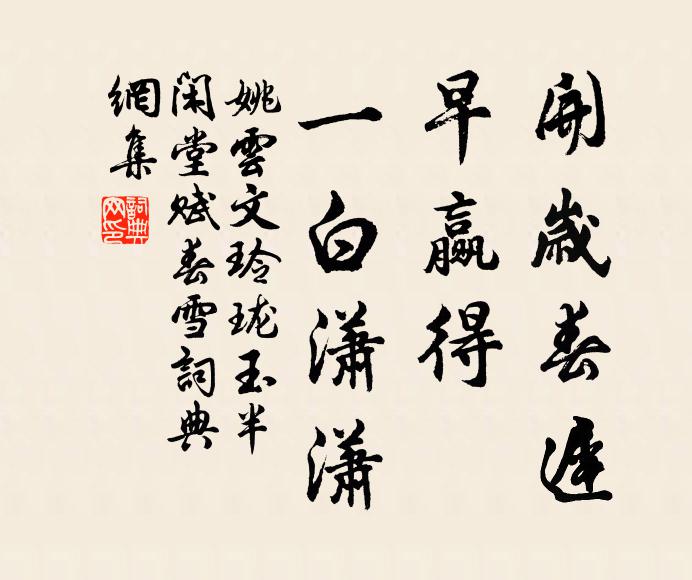 開歲春遲
早贏得
一白瀟瀟
姚雲文玲瓏玉半
閑堂賦春雪詞典
網集
詞典
网印